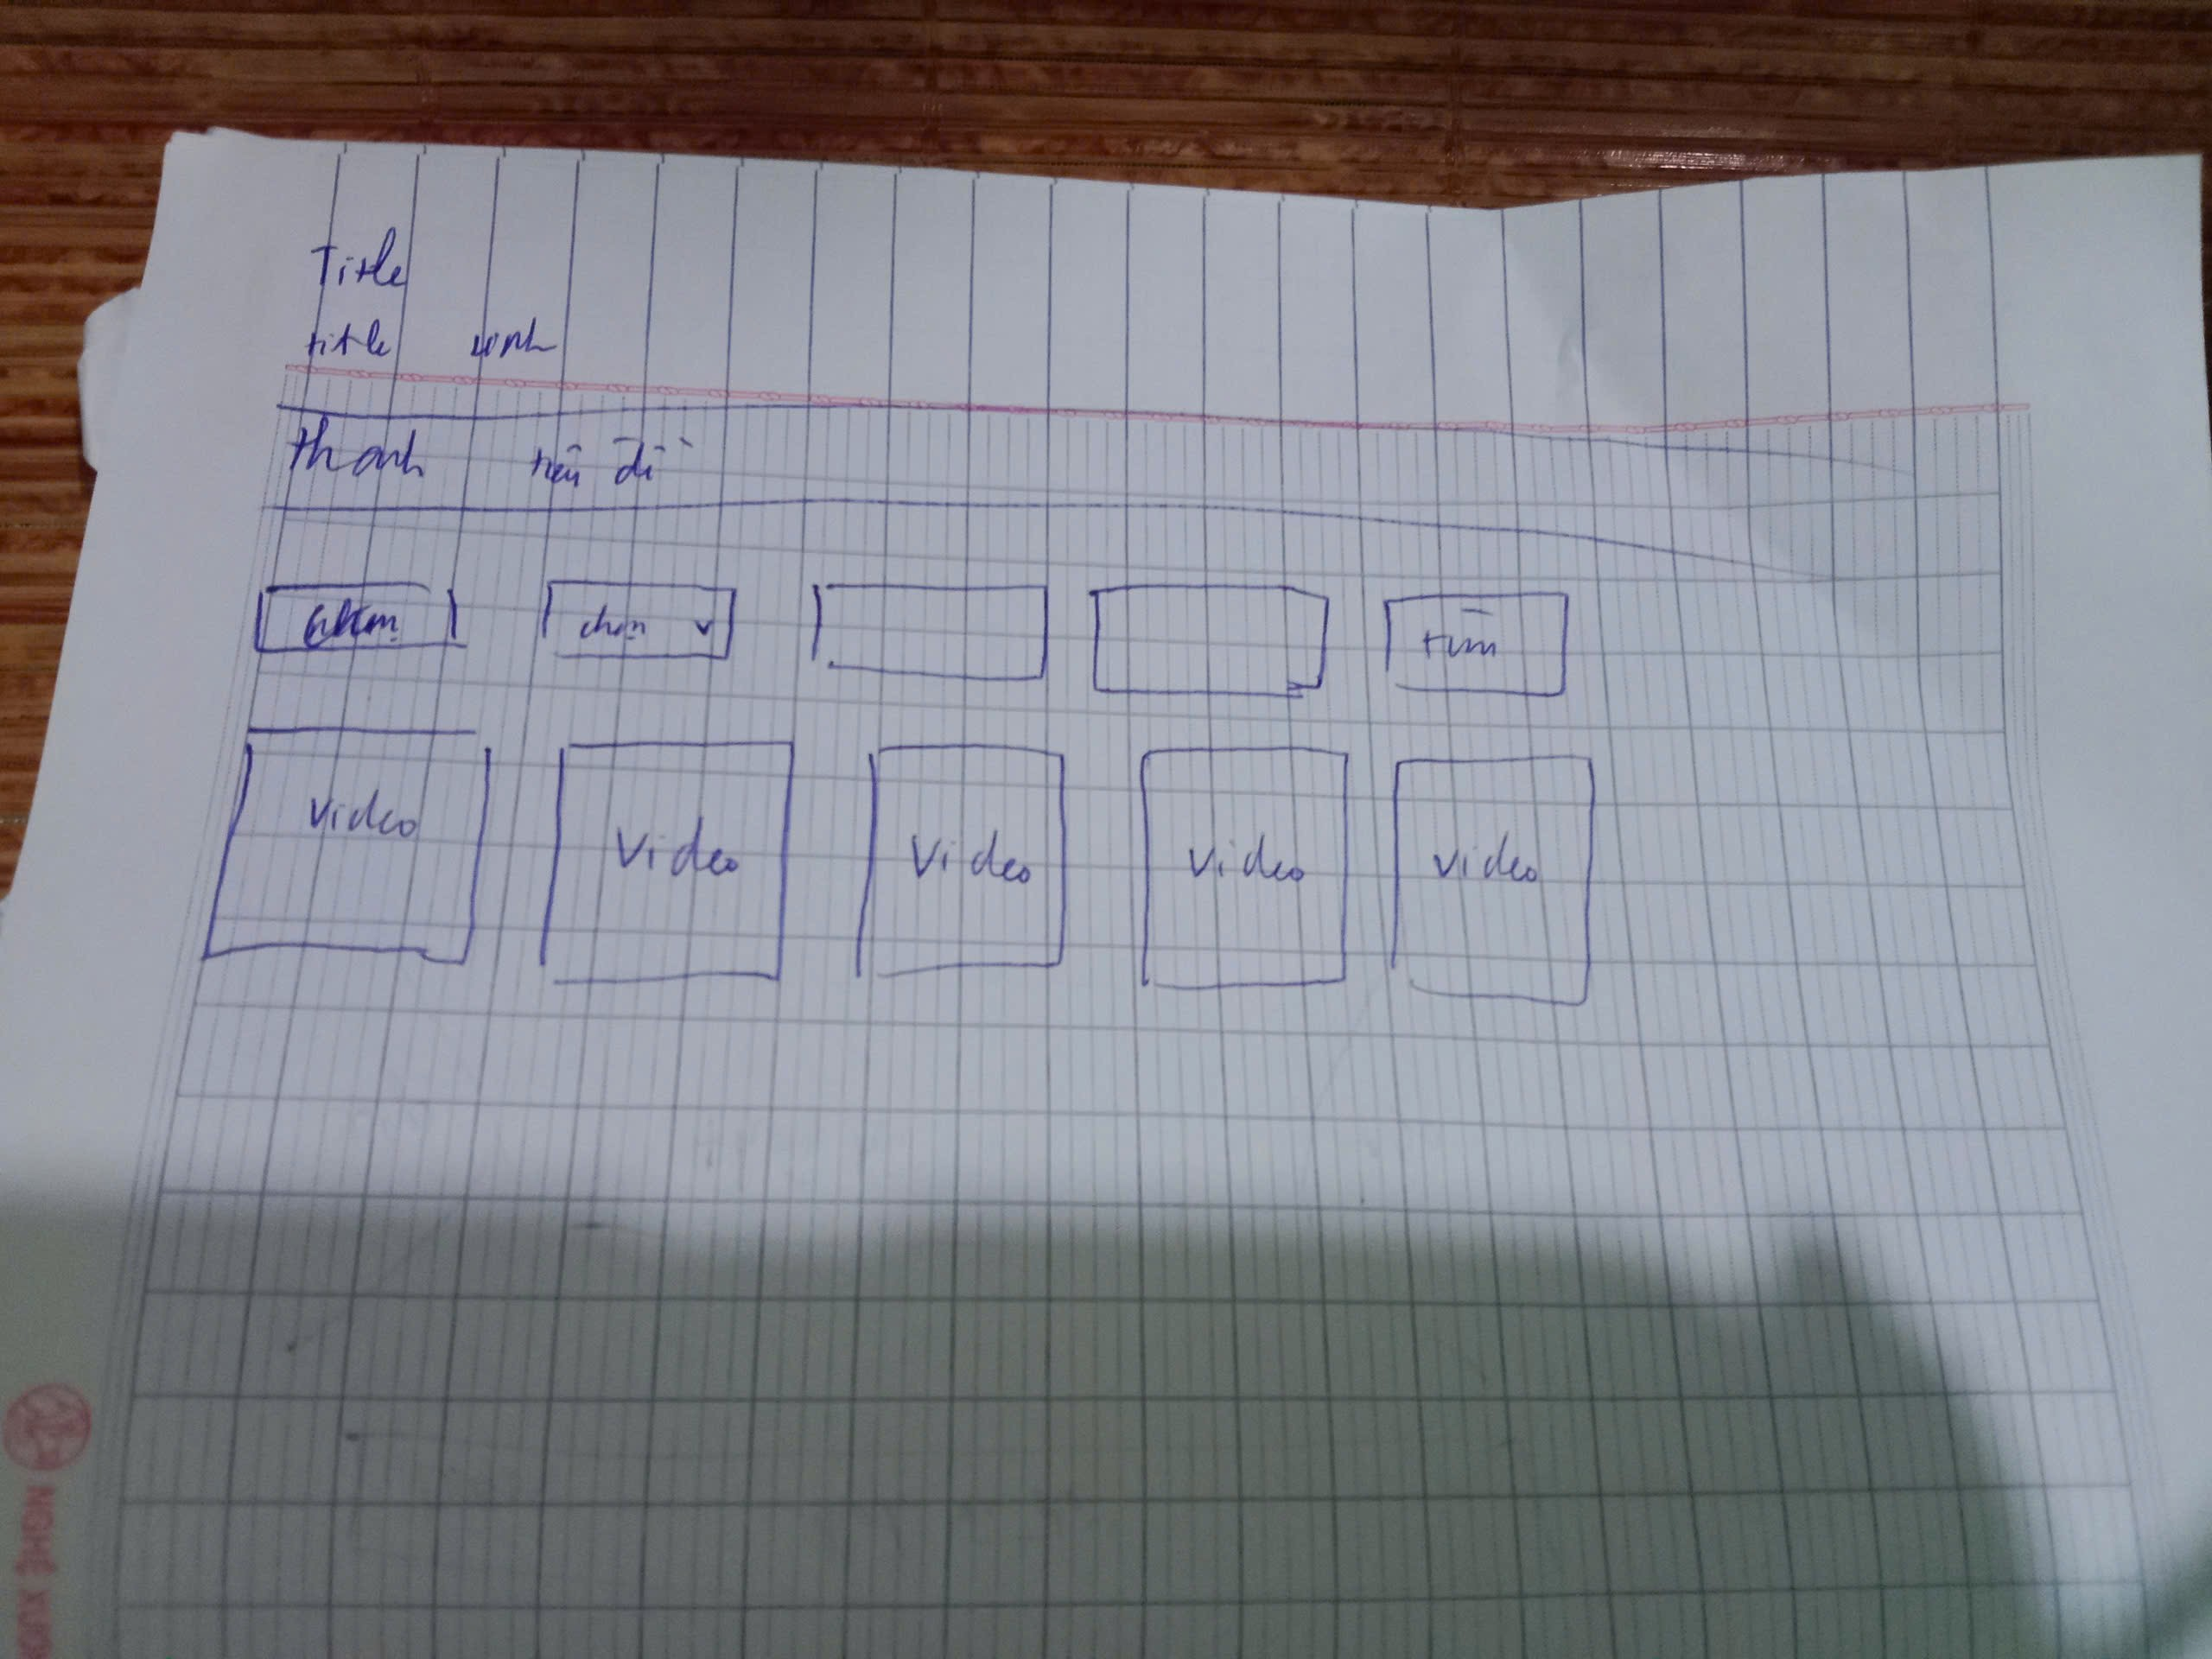 Title
title
thanh tiêu đề
chọn chọn tìm
video video video video video